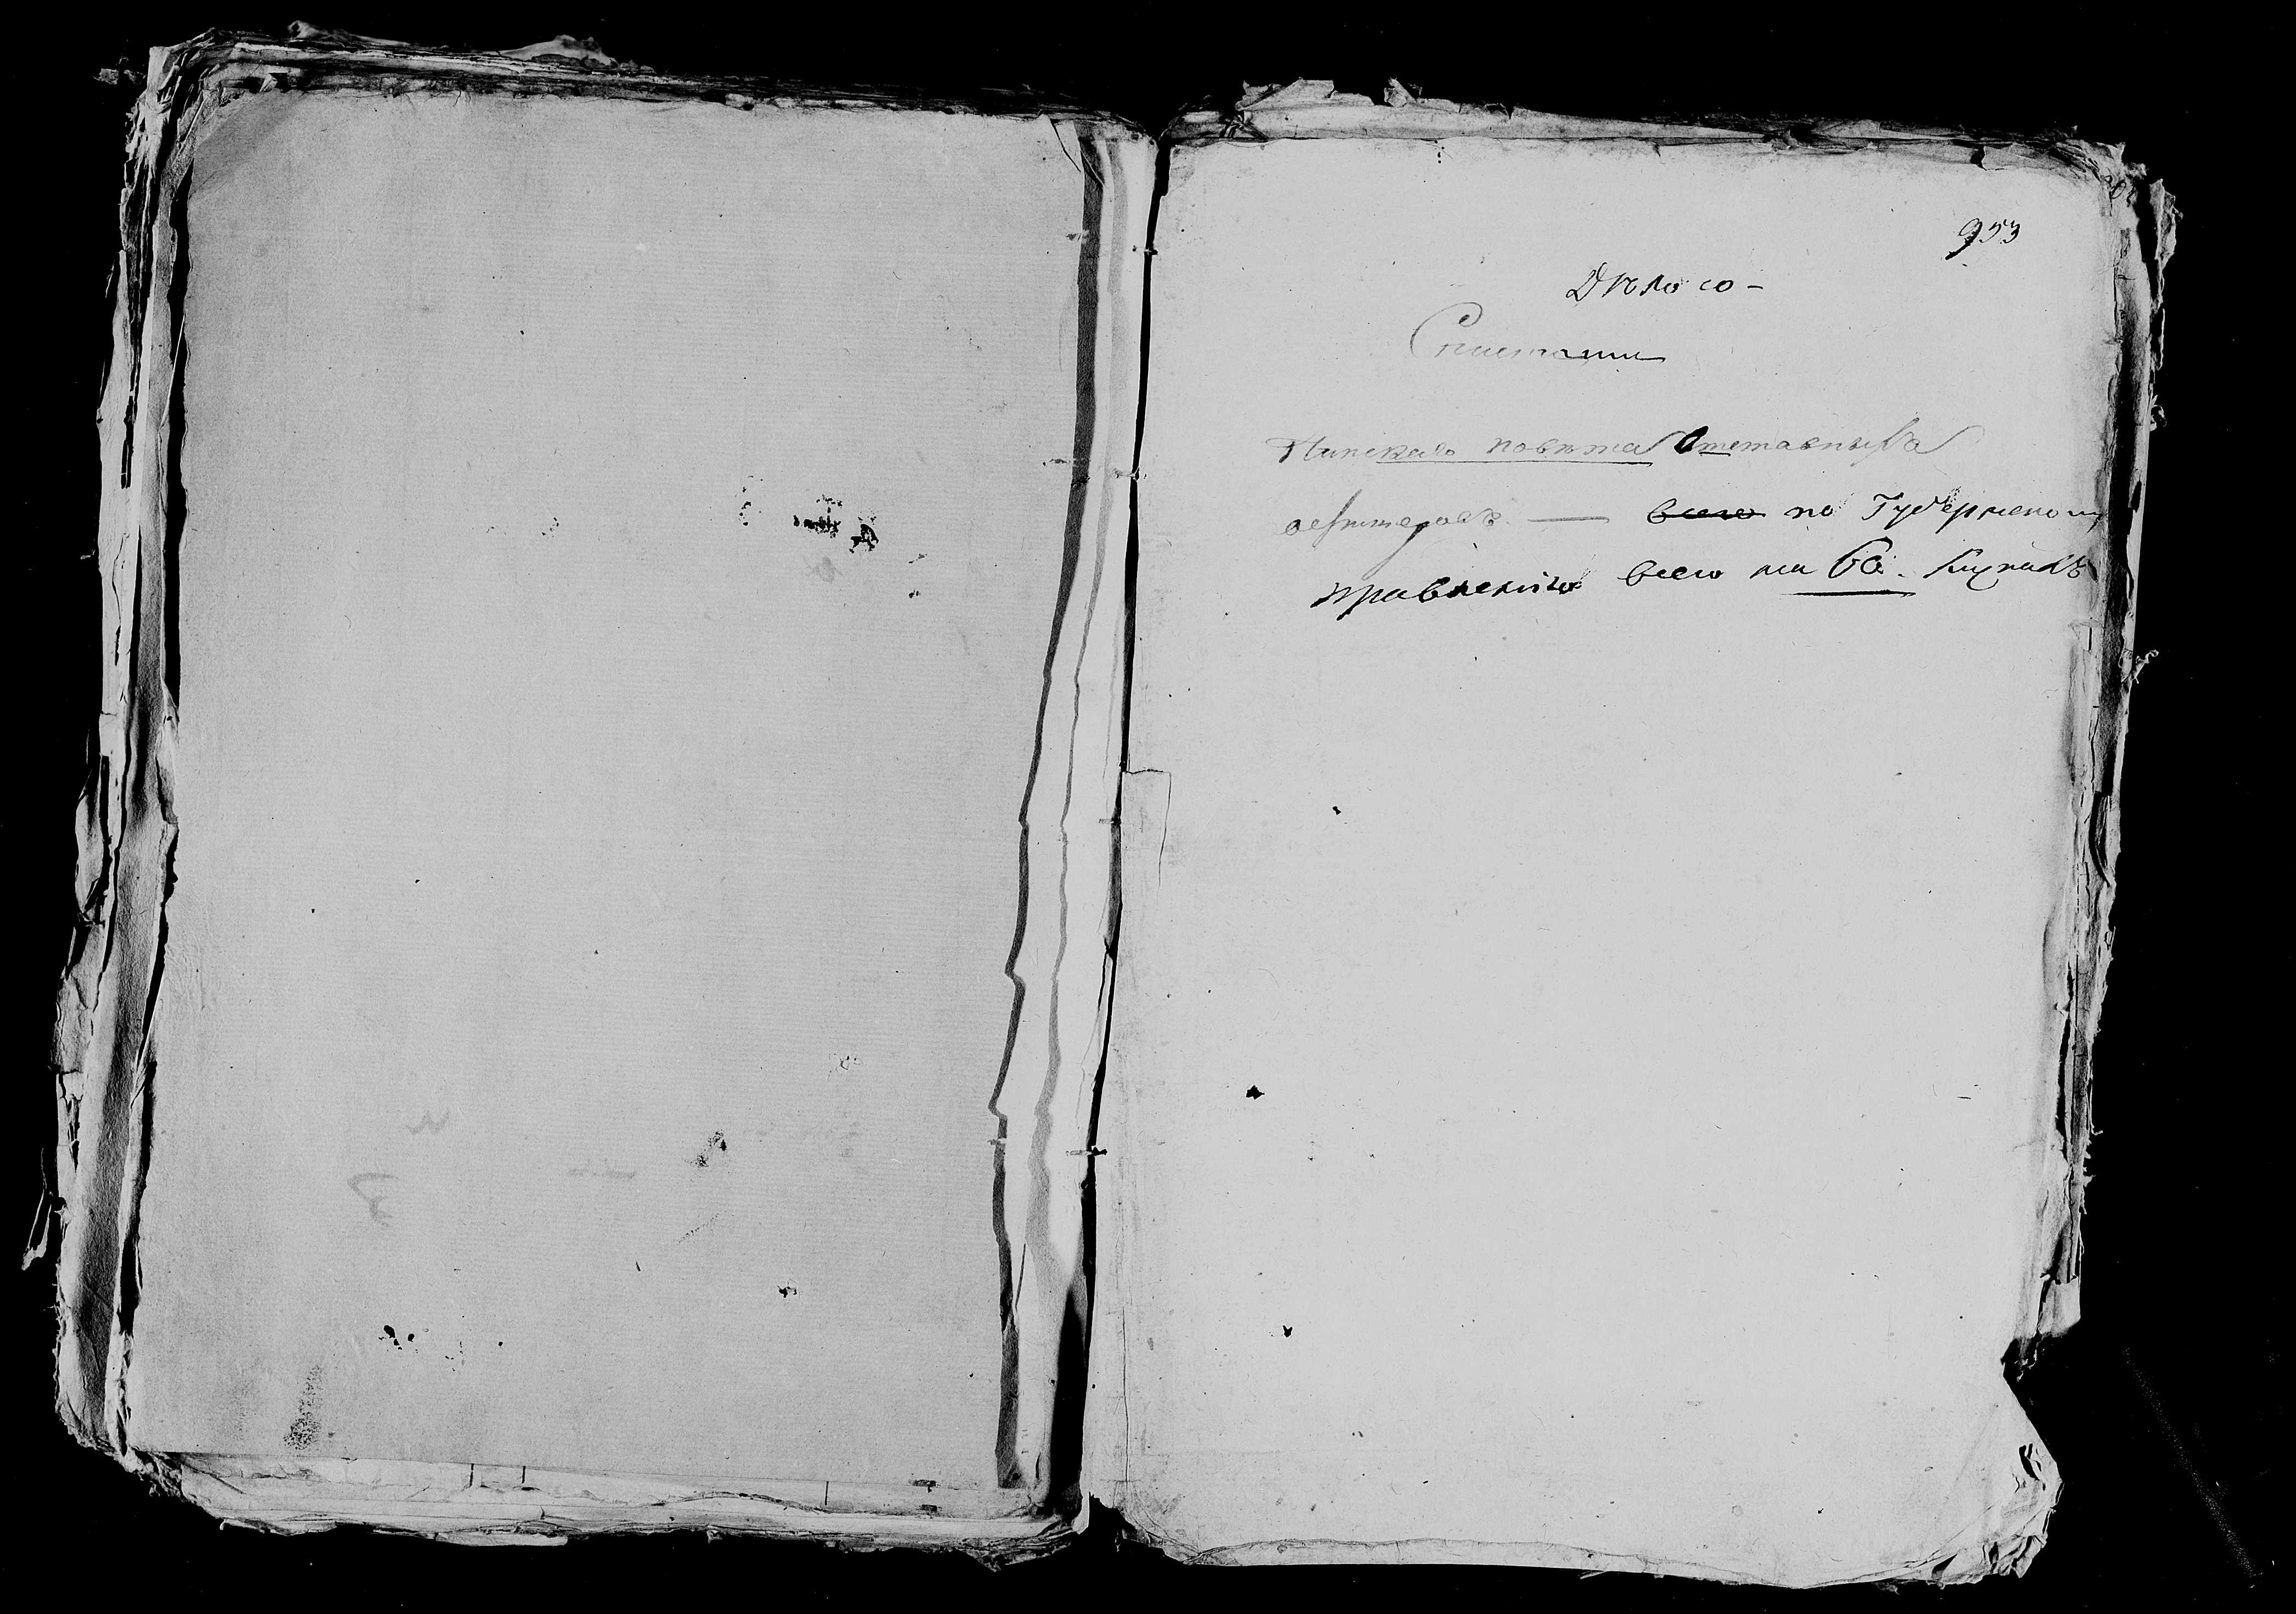 953
Дѣло со-
Списками
Пинскаго повѣта Отставныхъ
афицеровъ — всего по Губернскому
правленію всего на 60. Кускахъ